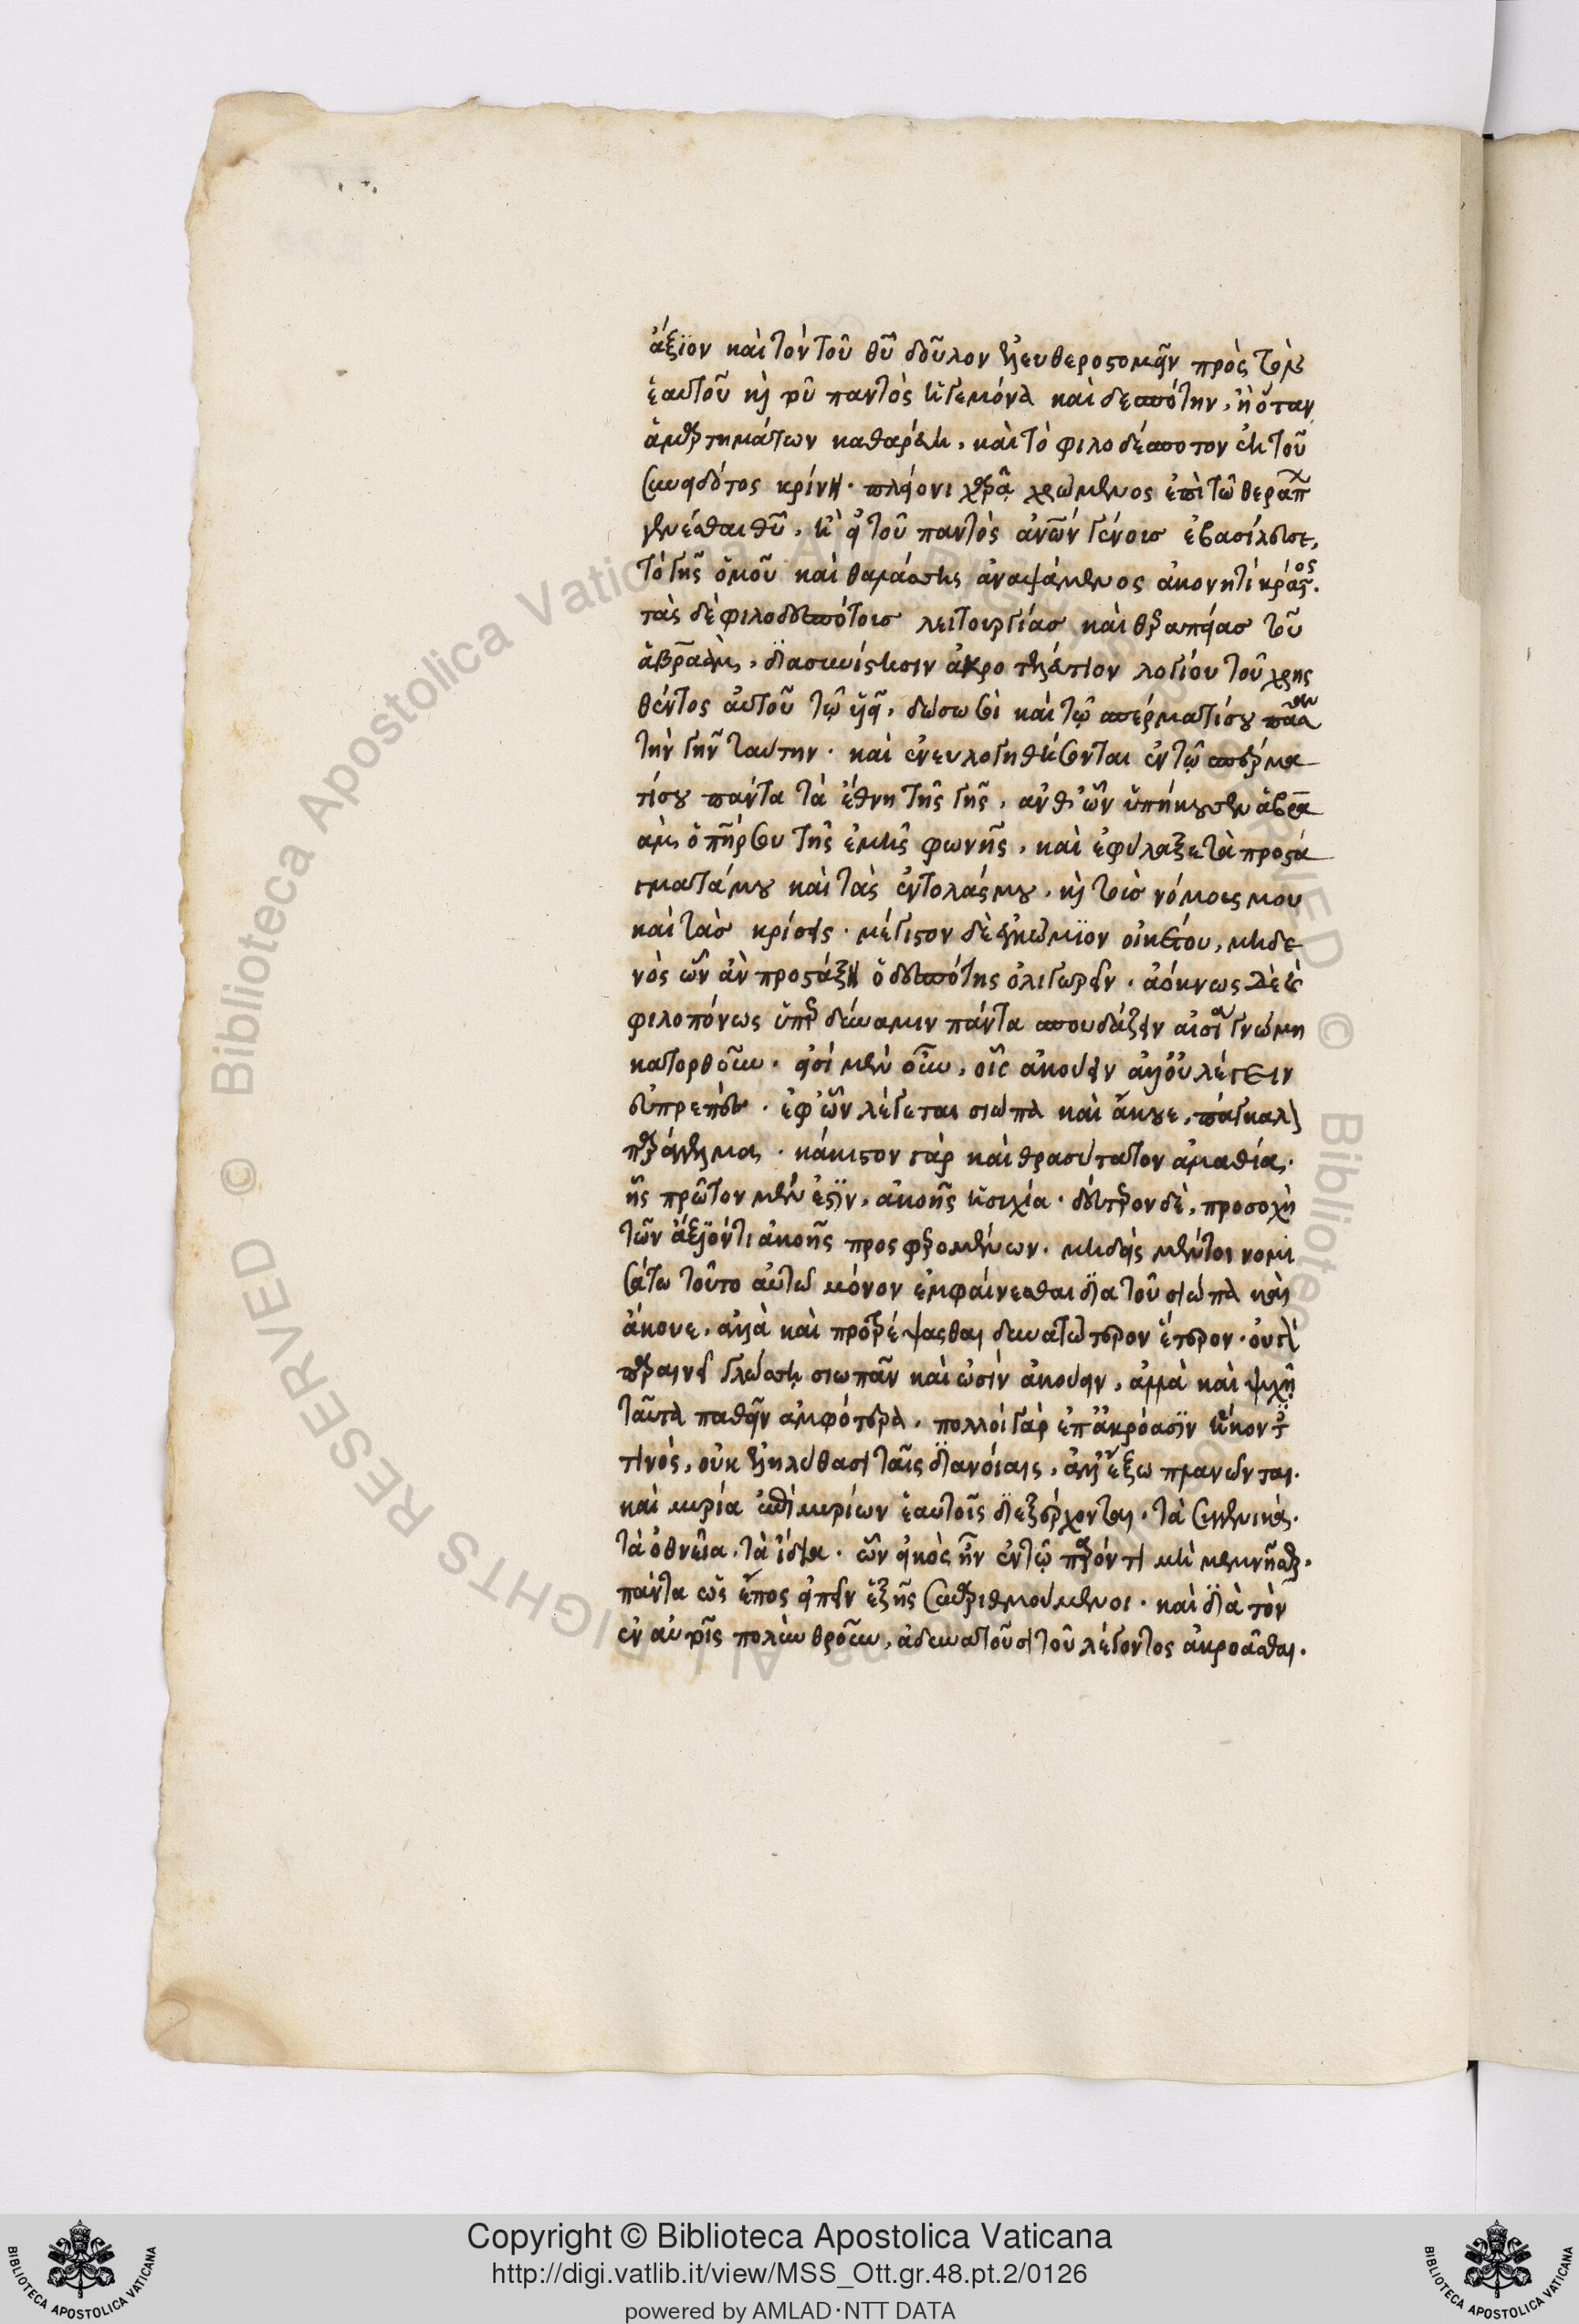 ἄξιον καὶ τὸν τοῦ θῦ δοῦλον ἐλευθεροστομεῖν πρὸς τὸν
ἑαυτοῦ καὶ τοῦ παντὸς ἡγεμόνα καὶ δεσπότην, ἢ ὅταν
ἁμαρτημάτων καθαρεύη, καὶ τὸ φιλοδέσποτον ἐκ τοῦ
συνειδότος κρίνη. πλείονι χαρᾷ χρώμενος ἐπὶ τῶ θεράπ
γενέσθαι θῦ, ἢ εἰ τοῦ παντὸς ἀνῶν γένους ἐβασίλευσε,
τὸ γῆς ὁμοῦ καὶ θαλάσσης ἀναψάμενος ἀκονητὶ κράτος.
τὰς δὲ φιλοδεσπότους λειτουργίας καὶ θεραπείας τοῦ
ἀβραὰμ, διασυνίστησιν ἀκροτελεύτιον λογίου τοῦ χρησ
θέντος αὐτοῦ τῷ υἱῷ, δώσω σοὶ καὶ τῷ σπέρματί σου πᾶσαν
τὴν γῆν ταύτην. καὶ ἐνευλογηθήσονται ἐν τῷ σπέρμα
τί σου πάντα τὰ ἔθνη τῆς γῆς, ἀνθ' ὧν ὑπήκουσεν ἀβρα
ὰμ ὁ πῆρ σου τῆς ἐμῆς φωνῆς, καὶ ἐφύλαξε τὰ προστά
γματά μου καὶ τὰς ἐντολάς μου, καὶ τοὺς νόμους μου
καὶ τὰς κρίσεις. μέγιστον δὲ ἐγκώμιον οἰκέτου, μηδε
νὸς ὧν ἂν προστάξη ὁ δεσπότης ὀλιγωρεῖν. ἀόκνως δὲ καὶ
φιλοπόνως ὑπὲρ δύναμιν πάντα σπουδάζειν αἰσίᾳ γνώμη
κατορθοῦν. εἰσὶ μὲν οὖν, οἷς ἀκούειν ἀλλ' οὐ λέγειν
εὐπρεπὲς. ἐφ' ὧν λέγεται σιώπα καὶ ἄκουε, πάγκαλον
παράγγελμα. κάκιστον γὰρ καὶ θρασύτατον ἀμαθία.
ἧς πρῶτον μέν ἐστιν, ἀκοῆς ἡσυχία. δεύτερον δὲ, προσοχὴ
τῶν ἀξιόντι ἀκοῆς προσφερομένων. μηδεὶς μέντοι νομι
σάτω τοῦτο αὐτὼ μόνον ἐμφαίνεσθαι διὰ τοῦ σιώπα καὶ
ἄκουε, ἀλλὰ καὶ προτρέψασθαι δυνατώτερον ἕτερον. οὐ γὰρ
παραινεῖ γλώσση σιωπᾶν καὶ ὠσὶν ἀκούειν, ἀλλὰ καὶ ψυχῇ
ταῦτα παθεῖν ἀμφότερα. πολλοὶ γὰρ ἐπ' ἀκρόασιν ἥκοντες
τινὸς, οὐκ ἐληλύθασι ταῖς διανοίαις, ἀλλ' ἔξω πλανῶνται.
καὶ μυρία ἐπὶ μυρίων ἑαυτοῖς διεξέρχονται. τὰ συγγενικὰ.
τὰ ὀθνεῖα. τὰ ἴδια. ὧν εἰκὸς ἦν ἐν τῷ παρόντι μὴ μεμνῆσθαι.
πάντα ὡς ἔπος εἰπεῖν ἑξῆς συναριθμούμενοι. καὶ διὰ τὸν
ἐν αὐτοῖς πολὺν θροῦν, ἀδυνατοῦσι τοῦ λέγοντος ἀκροᾶσθαι.
© Biblioteca Apostolica Vaticana ALL RIGHTS RESERVED
Copyright © Biblioteca Apostolica Vaticana
http://digi.vatlib.it/view/MSS_Ott.gr.48.pt.2/0126
powered by AMLAD·NTT DATA
BIBLIOTECA APOSTOLICA VATICANA
BIBLIOTECA APOSTOLICA VATICANA